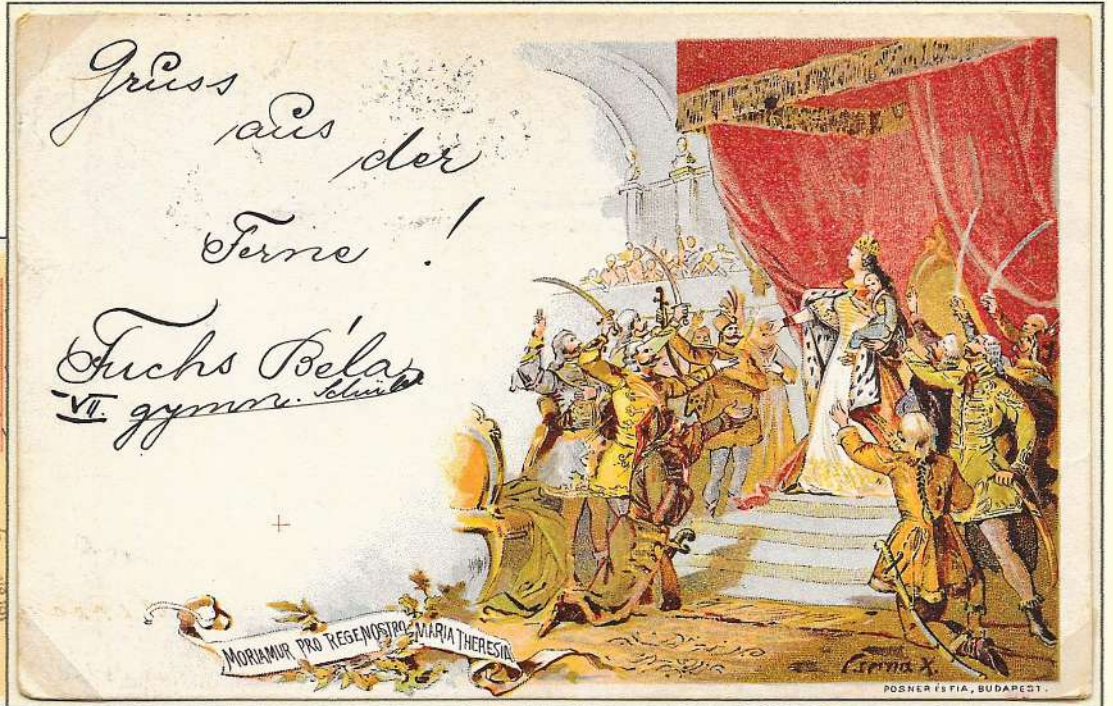 Gruss
aus
der
Ferne !
Fuchs Béla
VII. gymn. Schüler
MORIAMUR PRO REGE NOSTRO MARIA THERESIA
POSNER ÉS FIA, BUDAPEST.